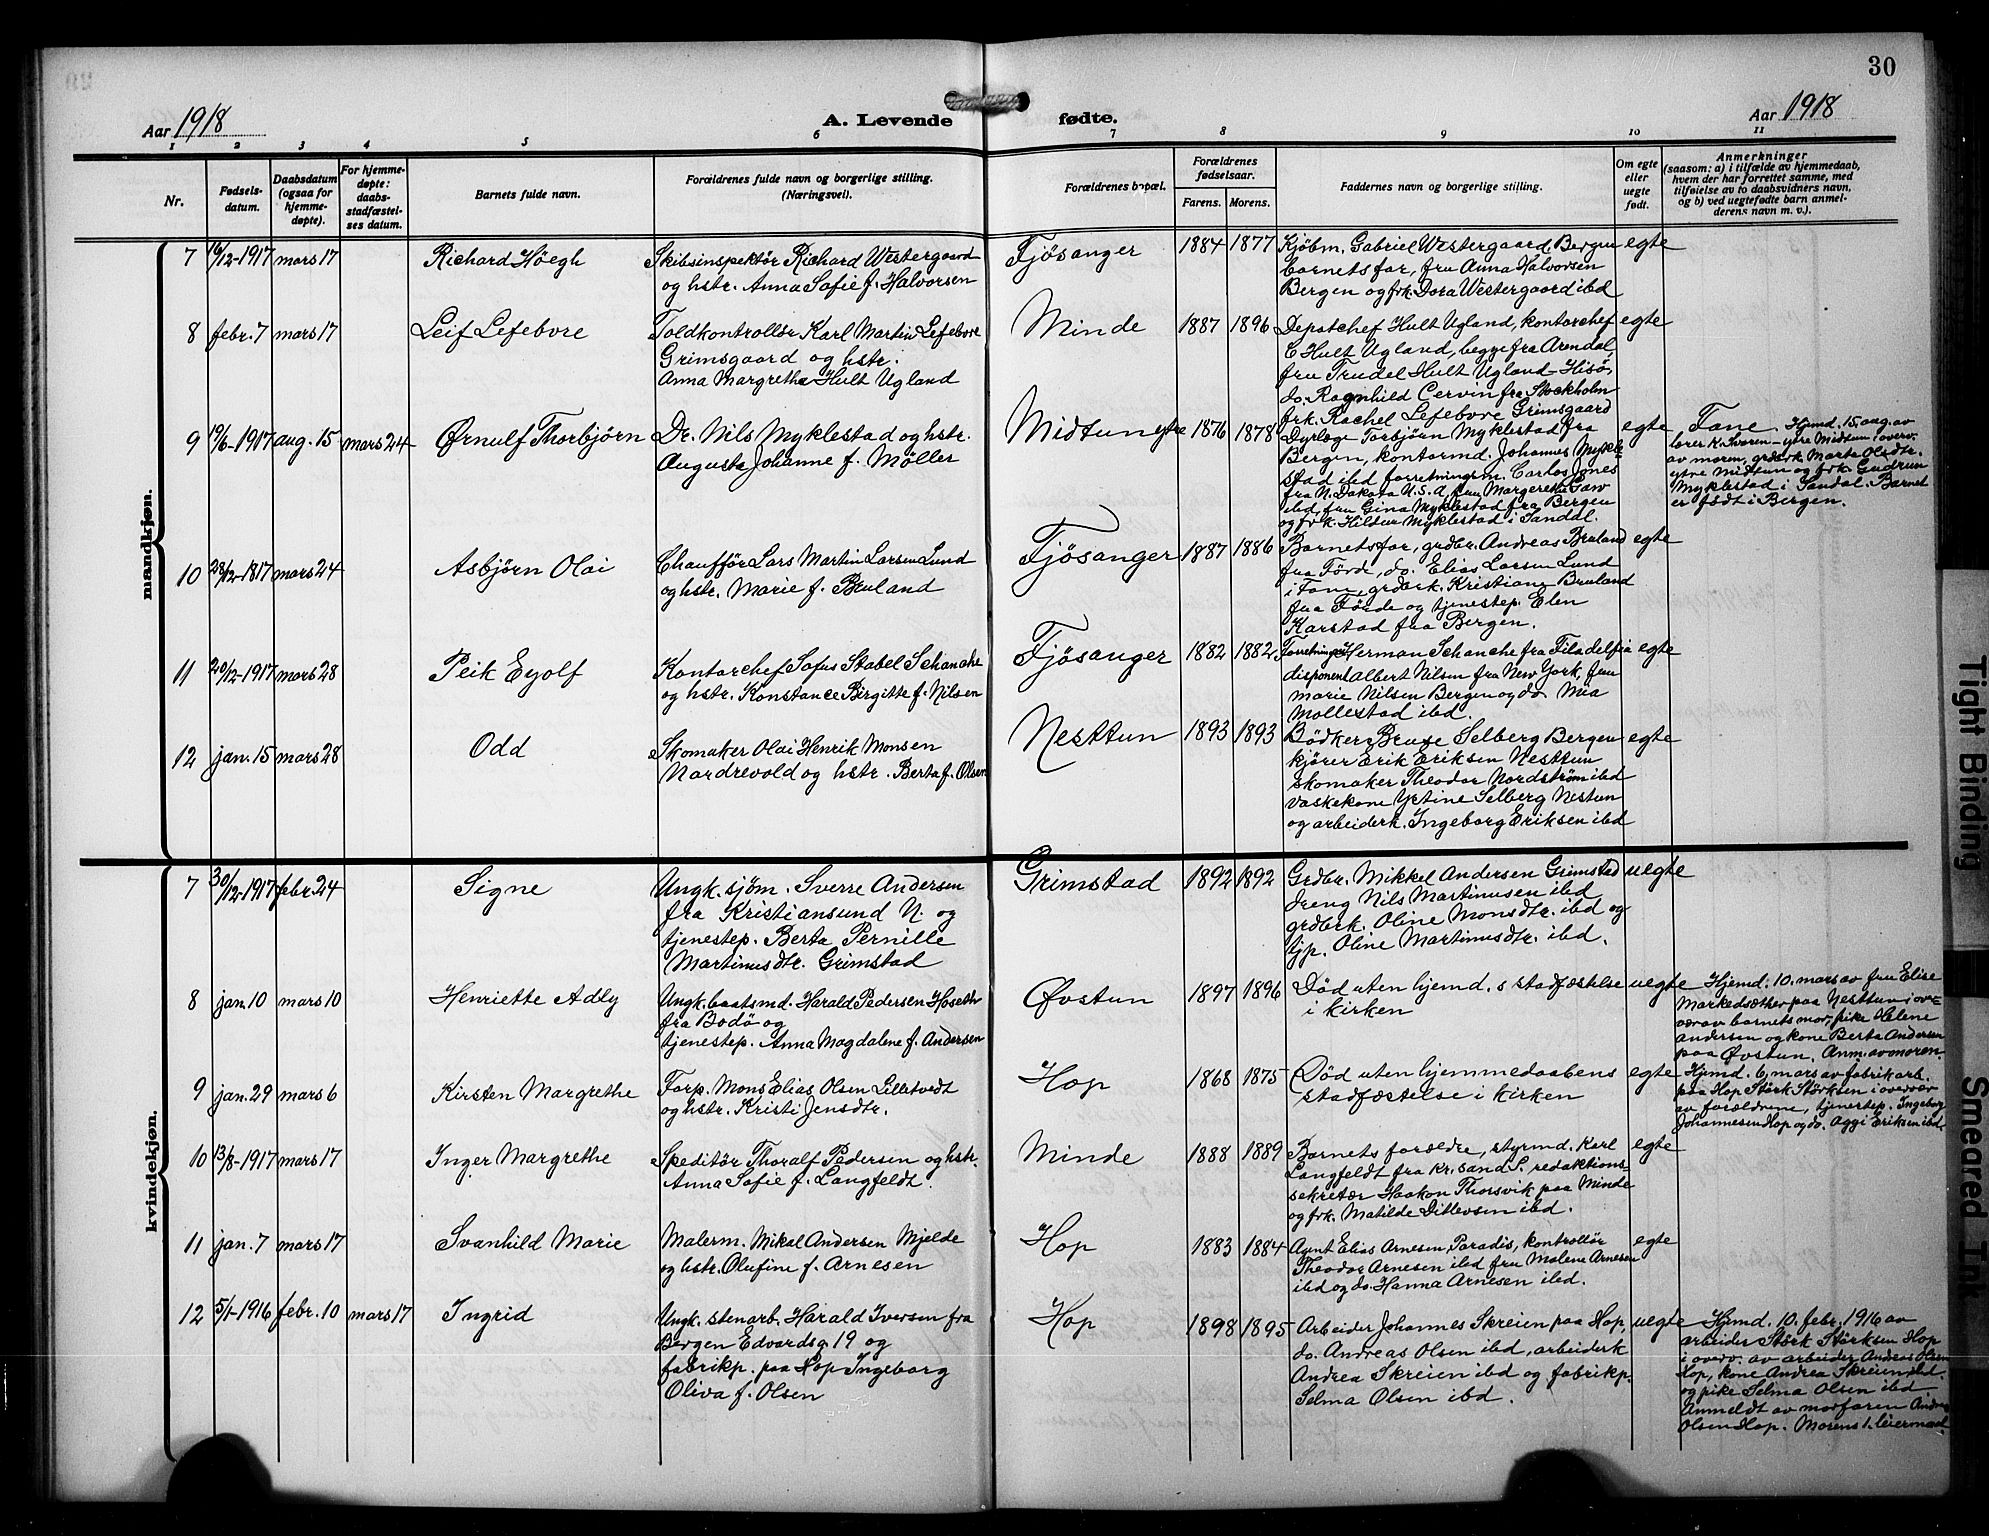 30
Aar 1918
A. Levende
fødte.
Aar 1918
1 2 3 4 5 6 7 8 9 10 11
Nr.
Fødsels-
datum.
Daabsdatum
(ogsaa for
hjemme-
døpte).
For hjemme-
døpte:
daabs-
stadfæstel-
ses datum.
Barnets fulde navn.
Forældrenes fulde navn og borgerlige stilling.
(Næringsvei).
Forældrenes bopæl.
Forældrenes
fødselsaar.
Farens. Morens.
Faddernes navn og borgerlige stilling.
Om egte
eller
uegte
født.
Anmerkninger
(saasom: a) i tilfælde av hjemmedaab,
hvem der har forrettet samme, med
tilføielse av to daabsvidners navn,
og b) ved uegtefødte barn anmel-
derens navn m. v.).
mandkjøn.
7 16/12-1917 mars 17 Richard Höegh
Skibsinspektör Richard Westergaard
og hstr. Anna Sofie f. Halvorsen
Fjösanger 1884 1877
Kjöbm. Gabriel Westergaard Bergen
barnets far, fru Anna Halvorsen
Bergen og frk. Dora Westergaard ibd
egte
8 febr. 7 mars 17 Leif Lefebvre
Toldkontrollör Karl Martin Lefebvre
Grimsgaard og hstr.
Anna Margrethe Hult Ugland
Minde 1887 1896
Depotchef Hult Ugland, kontorchef
C Hult Ugland, begge fra Arendal,
fru Trudel Hult Ugland Hisö,
do. Ragnhild Cervin fra Stockholm
frk. Rachel Lefebvre Grimsgaard
egte
9 19/6-1917 aug. 15 mars 24 Ørnulf Thorbjörn
Dr. Nils Myklestad og hstr.
Augusta Johanne f. Möller
Midtun ytre 1876 1878
Dyrlæge Torbjörn Myklestad fra
Bergen, kontormd. Johannes Mykle-
stad ibd forretningsm. Carlos Jones
fra N. Dakota U.S.A, fru Margerethe Gaw
ibd, fru Gina Myklestad fra Bergen
og frk. Hildur Myklestad i Sandal.
egte
Fane. Hjmd. 15. aug. av
lærer K. Tveren - ytre Midtun i overv.
av moren, grdbrk. Marta Olsdtr.
ytre Midtun og frk. Gudrun
Myklestad i Sandal. Barnet
er födt i Bergen.
10 28/12-1817 mars 24 Asbjörn Olai
Chaufför Lars Martin Larsen Lund
og hstr. Marie f. Bruland
Fjösanger 1887 1886
Barnets far, grdbr. Andreas Bruland
fra Förde, do. Elias Larsen Lund
i Fane, grdbrk. Kristiane Bruland
fra Förde og tjenestep. Elen
Karstad fra Bergen.
egte
11 20/12-1917 mars 28 Peik Eyolf
Kontorchef Sofus Stabel Schanche
og hstr. Konstance Birgitte f. Nilsen
Fjösanger 1882 1882
Forretningsm Herman Schanche fra Filadelfia
disponent Albert Nilsen fra New York, fru
Marie Nilsen Bergen og do Mia
Mollestad ibd.
egte
12 jan. 15 mars 28 Odd
Skomaker Olai Henrik Monsen
Nordrevold og hstr. Berta f. Olsen
Nesttun 1893 1893
Bödker Bruse Selberg Bergen
kjörer Erik Eriksen Nesttun
skomaker Theodor Nordström ibd
vaskekone Yrtine Selberg Nestun
og arbeiderk. Ingeborg Eriksen ibd
egte
kvindekjøn.
7 30/12-1917 febr. 24 Signe
Ungk. sjöm. Sverre Andersen
fra Kristiansund N. og
tjenestep. Berta Pernille
Martinusdtr. Grimstad
Grimstad 1892 1892
Grdbr. Mikkel Andersen Grimstad
dreng Nils Martinusen ibd
grdbrk. Oline Monsdtr. ibd og
tjp. Oline Martinusdtr. ibd.
uegte
8 jan. 10 mars 10 Henriette Adly
Ungk. baatsmd. Harald Pedersen Hoseth
fra Bodö og
tjenestep. Anna Magdalene f. Andersen
Øvstun 1897 1896
Död uten hjemd. s stadfæstelse
i kirken
uegte
Hjemd. 10. mars av fru Elise
Markedsæther paa Nesttun i ov=
erv. av barnets mor, pike Helene
Andersen og kone Berta Andersen
paa Øvstun. Anm. av moren.
9 jan. 29 mars 6 Kirsten Margrethe
Forp. Mons Elias Olsen Lilletvedt
og hstr. Kristi Jensdtr.
Hop 1868 1875
Död uten hjemmedaabens
stadfæstelse i kirken
egte
Hjemd. 6. mars av fabrikarb.
paa Hop Störk Störksen i overv. av
av forældrene, tjenestep. Ingeborg
Johannesen Hop og do. Aggi Eriksen ibd.
10 13/8-1917 mars 17 Inger Margrethe
Speditör Thoralf Pedersen og hstr.
Anna Sofie f. Langfeldt.
Minde 1888 1889
Barnets forældre, styrmd. Karl
Langfeldt fra Kr.sand S. redaktions-
sekretær Haakon Thorsvik paa Minde
og frk. Matilde Ditlevsen ibd.
egte
11 jan. 7 mars 17 Svanhild Marie
Malerm. Mikal Andersen Mjelde
og hstr. Olufine f. Arnesen
Hop 1883 1884
Agnt Elias Arnesen, Paradis, kontrollör
Theodor Arnesen ibd fru Malene Arnesen
ibd og do. Hanna Arnesen ibd.
egte
12 5/1-1916 febr. 10 mars 17 Ingrid
Ungk. stenarb. Harald Iversen fra
Bergen Edvardsg 19 og
fabrikp. paa Hop Ingeborg
Oliva f. Olsen
Hop 1898 1895
Arbeider Johannes Skreien paa Hop,
do. Andreas Olsen ibd, arbeiderk
Andrea Skreien ibd og fabrikp.
Selma Olsen ibd.
uegte
Hjmd. 10. febr. 1916 av
arbeider Störk Störksen Hop
i overv. av arbeider Andreas Olsen
Hop, kone Andrea Skreien ibd
og pike Selma Olsen ibd.
Anmeldt av morfaren Andreas
Olsen Hop. Morens 1. leiermaal
Tight Binding
Smeared Ink